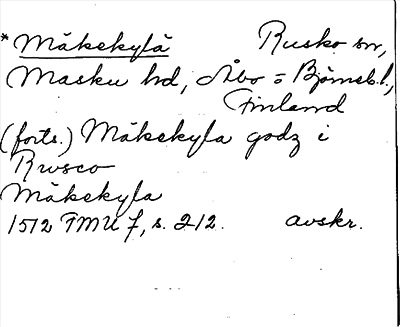 *Mäkekylä Rusko sn,
Masku hd, Åbo = Björneb.l.,
Finland
(forts.) Mäkekyla godz i
Rusco
Mäkekyla
1512 FMU 7, s. 212. avskr.